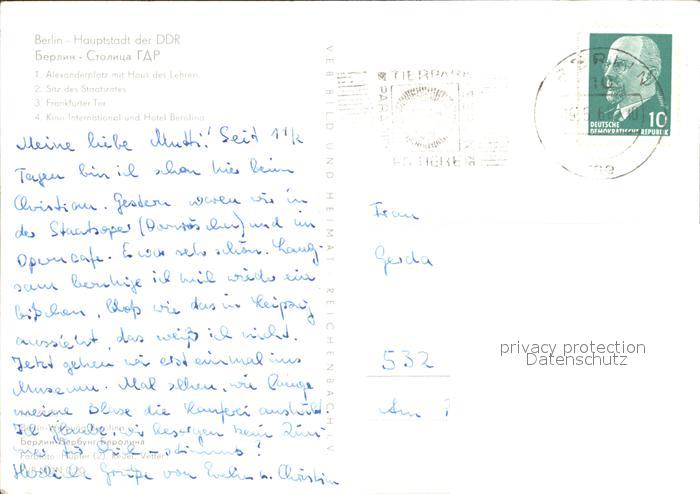 Berlin - Hauptstadt der DDR
Берлин - Столица ГДР
1. Alexanderplatz mit Haus des Lehrers
2. Sitz des Staatsrates
3. Frankfurter Tor
4. Kino International und Hotel Berolina
Meine liebe Mutti! Seit 1 1/2
Tagen bin ich schon hier beim
Christian. Gestern waren wir in
der Staatsoper und im
Operncafe. Es war sehr schön. Lang-
sam beruhige ich mich wieder ein
bißchen, bloß wie das in Leipzig
aussieht, das weiß ich nicht.
Jetzt gehen wir erst einmal ins
Museum. Mal sehen, wie lange
meine Blase die Lauferei aushält.
Ich glaube, wir besorgen kein Zim-
mer für Dich - stimmts?
Herzliche Grüße von Evelin u. Christian
VERBILD UND HEIMAT REICHENBACH I. V.
TIERPARK
DEUTSCHE
DEMOKRATISCHE REPUBLIK
10
Frau
Gerda
532
Am
privacy protection
Datenschutz